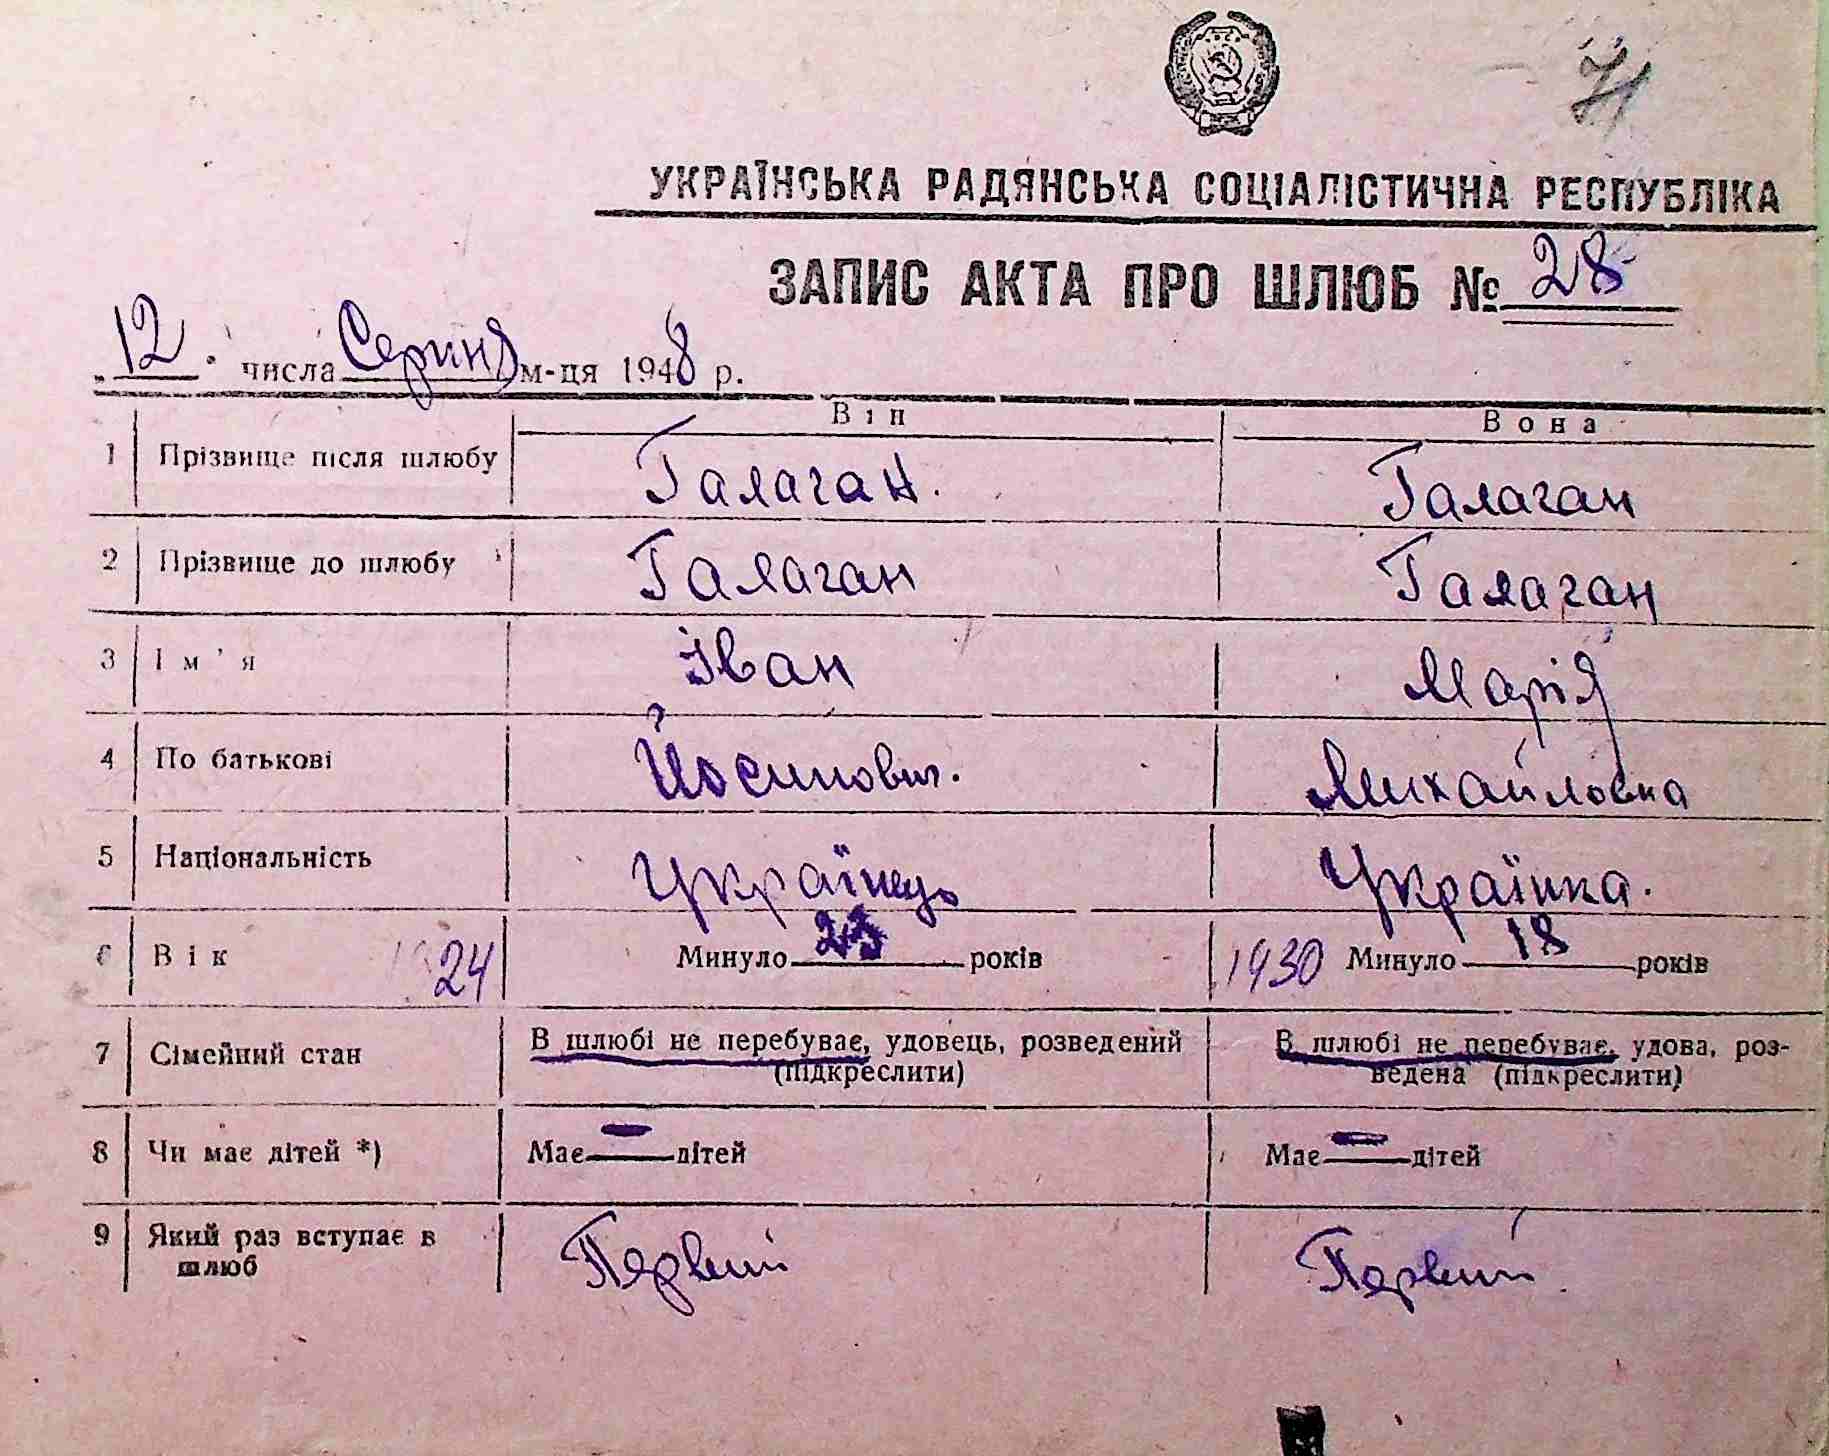 71
УКРАЇНСЬКА РАДЯНСЬКА СОЦІАЛІСТИЧНА РЕСПУБЛІКА
ЗАПИС АКТА ПРО ШЛЮБ № 28
„12" числа Серпня м-ця 1948 р.
Він Вона
1 Прізвище після шлюбу Галаган. Галаган
2 Прізвище до шлюбу Галаган Галаган
3 Ім'я Іван Марія
4 По батькові Йосипович. Михайловна
5 Національність Українець Українка.
6 Вік 1924 Минуло 23 років 1930 Минуло 18 років
7 Сімейний стан В шлюбі не перебуває, удовець, розведений В шлюбі не перебуває, удова, роз-
(підкреслити) ведена (підкреслити)
8 Чи має дітей *) Має — дітей Має — дітей
9 Який раз вступає в Первий Первий
шлюб